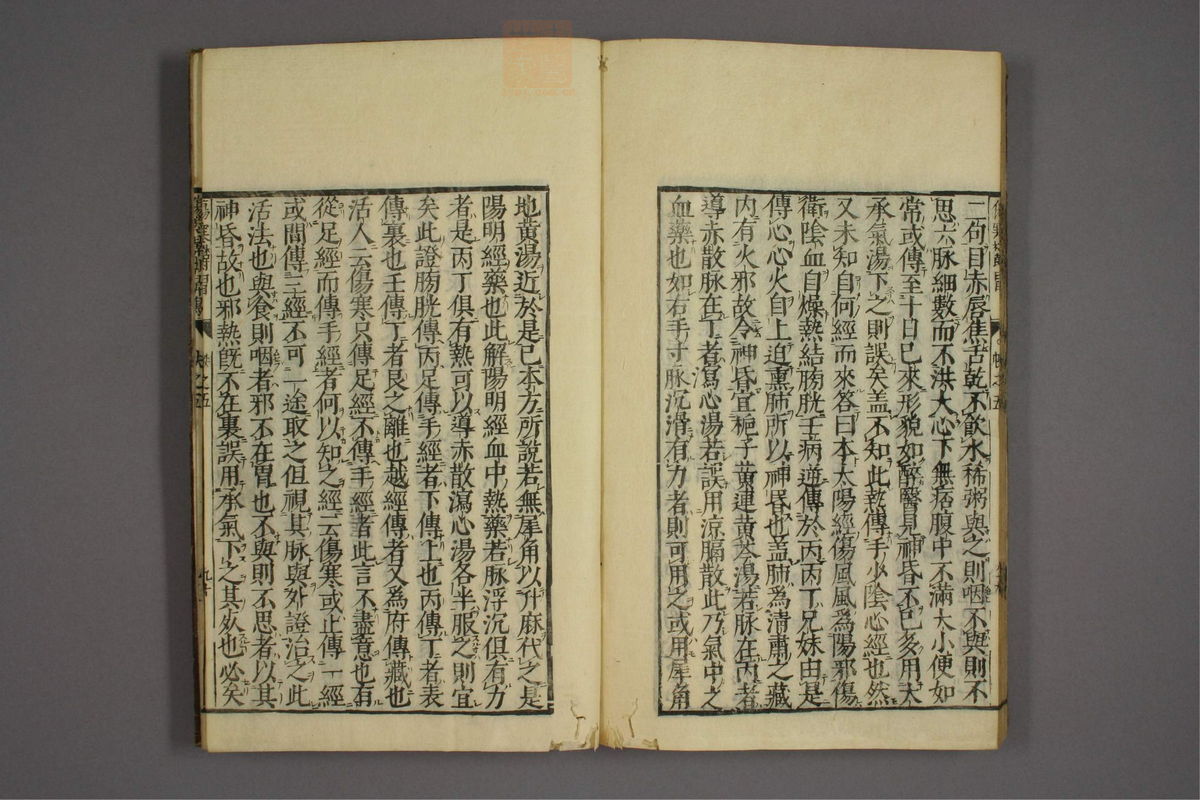 二句目赤唇焦舌乾不飲水稀粥與之則咽不與則不
思六脉細數而不洪大心下無痞腹中不滿大小便如
常或傳至十日已來形貌如醉醫見神昏不已多用大
承氣湯下之則誤矣盖不知此熱傳手少陰心經也然
又未知自何經而來答曰本太陽經傷風風爲陽邪傷
衛陰血自燥熱結膀胱壬病逆傳於丙丙丁兄妹由是
傳心心火自上迫熏肺所以神昏也盖肺爲清肅之藏
内有火邪故令神昏宜梔子黄連黄芩湯若脉在丙者
導赤散脉在丁者瀉心湯若誤用凉膈散此乃氣中之
血藥也如右手寸脉沉滑有力者則可用之或用犀角
地黄湯近於是已本方所說若無犀角以升麻代之是
陽明經藥也此解陽明經血中熱藥若脉浮沉俱有力
者是丙丁俱有熱可以導赤散瀉心湯各半服之則宜
矣此證膀胱傳丙足傳手經者下傳上也丙傳丁者表
傳裏也壬傳丁者艮之離也越經傳者又爲府傳藏也
活人云傷寒只傳足經不傳手經者此言不盡意也有
從足經而傳手經者何以知之經云傷寒或止傳一經
或間傳三經不可一途取之但視其脉與外證治之此
活法也與食則咽者邪不在胃也不與則不思者以其
神昏故也邪熱既不在裏誤用承氣下之其死也必矣
卷之五